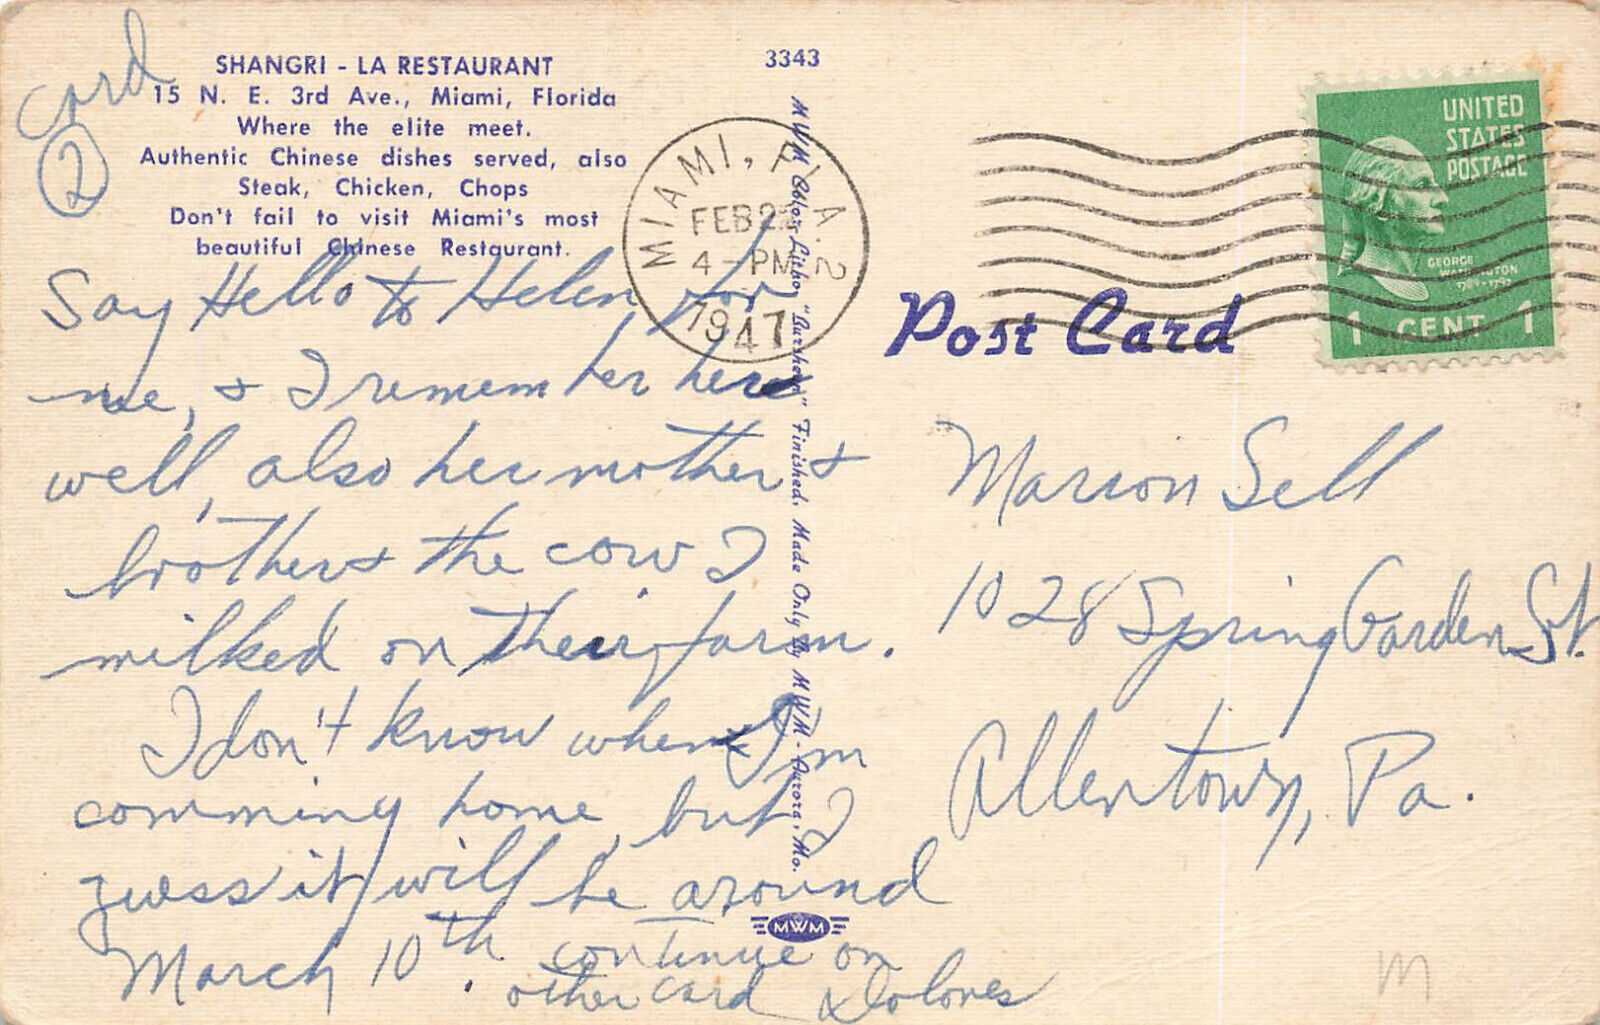 Card
2
SHANGRI - LA RESTAURANT
15 N. E. 3rd Ave., Miami, Florida
Where the elite meet.
Authentic Chinese dishes served, also
Steak, Chicken, Chops
Don't fail to visit Miami's most
beautiful Chinese Restaurant.
3343
MIAMI, FLA. 2
FEB 22
4 - PM
1947
UNITED
STATES
POSTAGE
GEORGE
WASHINGTON
1789-1797
1 CENT 1
Post Card
MWM Color-Litho "Durherst" Finished. Made Only By MWM - Aurora, Mo.
Say Hello to Helen for
me, & I remember here
well, also her mother &
brother & the cow I
milked on their farm.
I don't know when I'm
comming home, but I
guess it will be around
March 10th. continue on
other card Dolores
Marion Sell
1028 Spring Garden St.
Allentown, Pa.
MWM
M